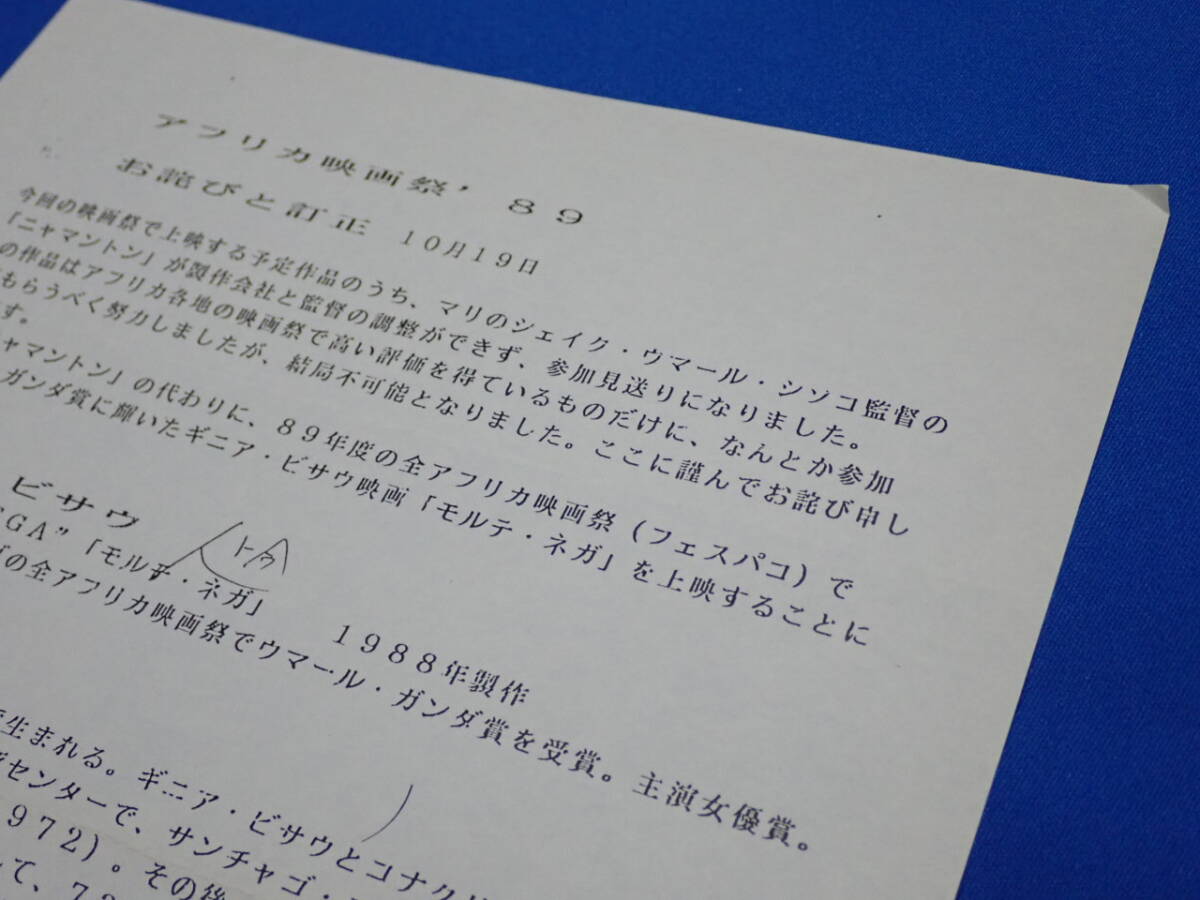 アフリカ映画祭’８９
お詫びと訂正　１０月１９日
今回の映画祭で上映する予定作品のうち、マリのシェイク・ウマール・シソコ監督の
「ニャマントン」が製作会社と監督の調整ができず、参加見送りになりました。
の作品はアフリカ各地の映画祭で高い評価を得ているものだけに、なんとか参加
もらうべく努力しましたが、結局不可能となりました。ここに謹んでお詫び申し
す。
ャマントン」の代わりに、８９年度の全アフリカ映画祭（フェスパコ）で
ガンダ賞に輝いたギニア・ビサウ映画「モルテ・ネガ」を上映することに
ビサウ
GA”「モルテ・ネガ」　１９８８年製作
の全アフリカ映画祭でウマール・ガンダ賞を受賞。主演女優賞。
生まれる。ギニア・ビサウとコナク
センターで、サンチャゴ・
９７２）。その後
て、７